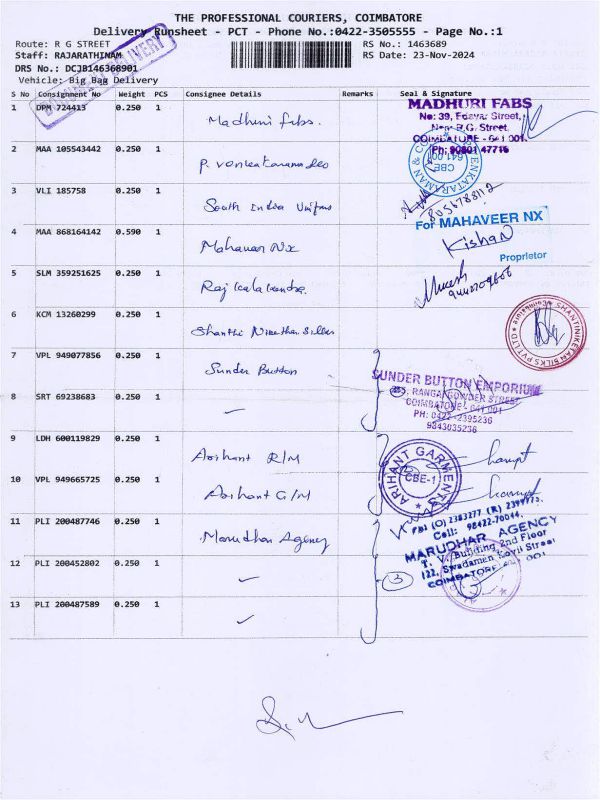 THE PROFESSIONAL COURIERS, COIMBATORE
Delivery Runsheet - PCT - Phone No.:0422-3505555 - Page No.:1
Route: R G STREET RS No.: 1463689
Staff: RAJARATHINAM RS Date: 23-Nov-2024
DRS No.: DCJB146368901
Vehicle: Big Bag Delivery
DELIVERY
S No Consignment No Weight PCS Consignee Details Remarks Seal & Signature
1 DPM 724413 0.250 1 Madhuri fabs.
MADHURI FABS
No: 39, Street,
Near R.G. Street,
COIMBATORE - 641 001.
Ph: 90801 47715
2 MAA 105543442 0.250 1 P. Venkataraman &co
VENKATARAMAN & CO
CBE
641 001
3 VLI 185758 0.250 1 South India
8056788112
4 MAA 868164142 0.590 1 Mahaveer Nx
For MAHAVEER NX
Kishan
Proprietor
5 SLM 359251625 0.250 1 Raj kala kendra.
6 KCM 13260299 0.250 1 Shanthi Silks
SHANTINIKETAN SILKS PVT LTD Coimbatore
7 VPL 949077856 0.250 1 Sunder Button
8 SRT 69238683 0.250 1
SUNDER BUTTON EMPORIUM
RANGAI GOWDER STREET
COIMBATORE - 641 001
PH: 0422-2395236
9843035236
9 LDH 600119829 0.250 1 Arihant R/M
10 VPL 949665725 0.250 1 Arihant G/M
ARIHANT GARMENTS
CBE-1
11 PLI 200487746 0.250 1 Marudhar Agency
12 PLI 200452802 0.250 1
13 PLI 200487589 0.250 1
3
(O) 2383277 (R)
Cell: 98422-70044,
MARUDHAR AGENCY
T. V. Building 2nd Floor
122, Swadamen Kovil Street
COIMBATORE 641 001